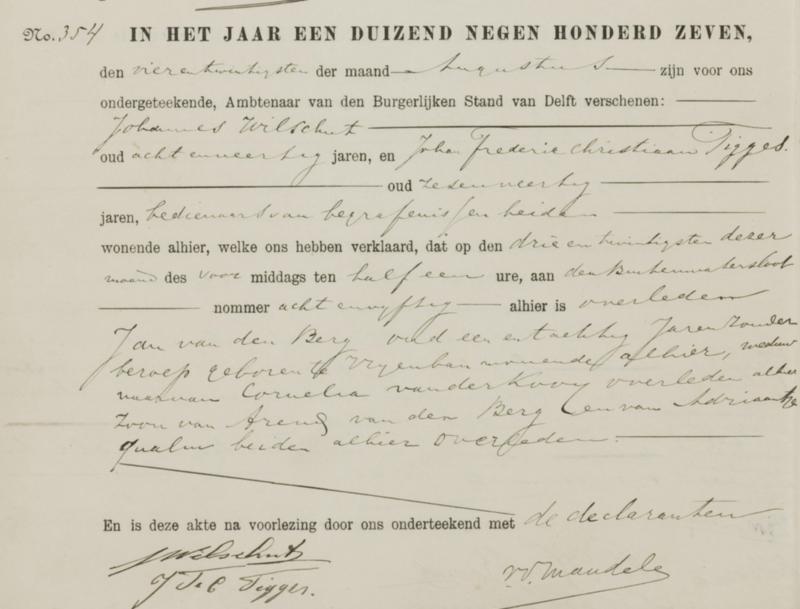 No. 354 IN HET JAAR EEN DUIZEND NEGEN HONDERD ZEVEN,
den vierentwintigsten der maand Augustus zijn voor ons
ondergeteekende, Ambtenaar van den Burgerlijken Stand van Delft verschenen:
Johannes Wilschut
oud achtenveertig jaren, en Johan Frederic Christiaan Tigges.
oud zesenveertig
jaren, bedienaars van begrafenissen beiden
wonende alhier, welke ons hebben verklaard, dat op den drieentwintigsten dezer
maand des voor middags ten half een ure, aan den Buitenwatersloot
nommer achtenvyftig alhier is overleden
Jan van den Berg oud eenentachtig Jaren zonder
beroep geboren te Vryenban wonende alhier, weduw
naar van Cornelia van der Kooy overleden alhier
zoon van Arend van den Berg en van Adriaantje
beiden alhier overleden.
En is deze akte na voorlezing door ons onderteekend met de declaranten
J Wilschut
J F C Tigges.
v.d. Mandele